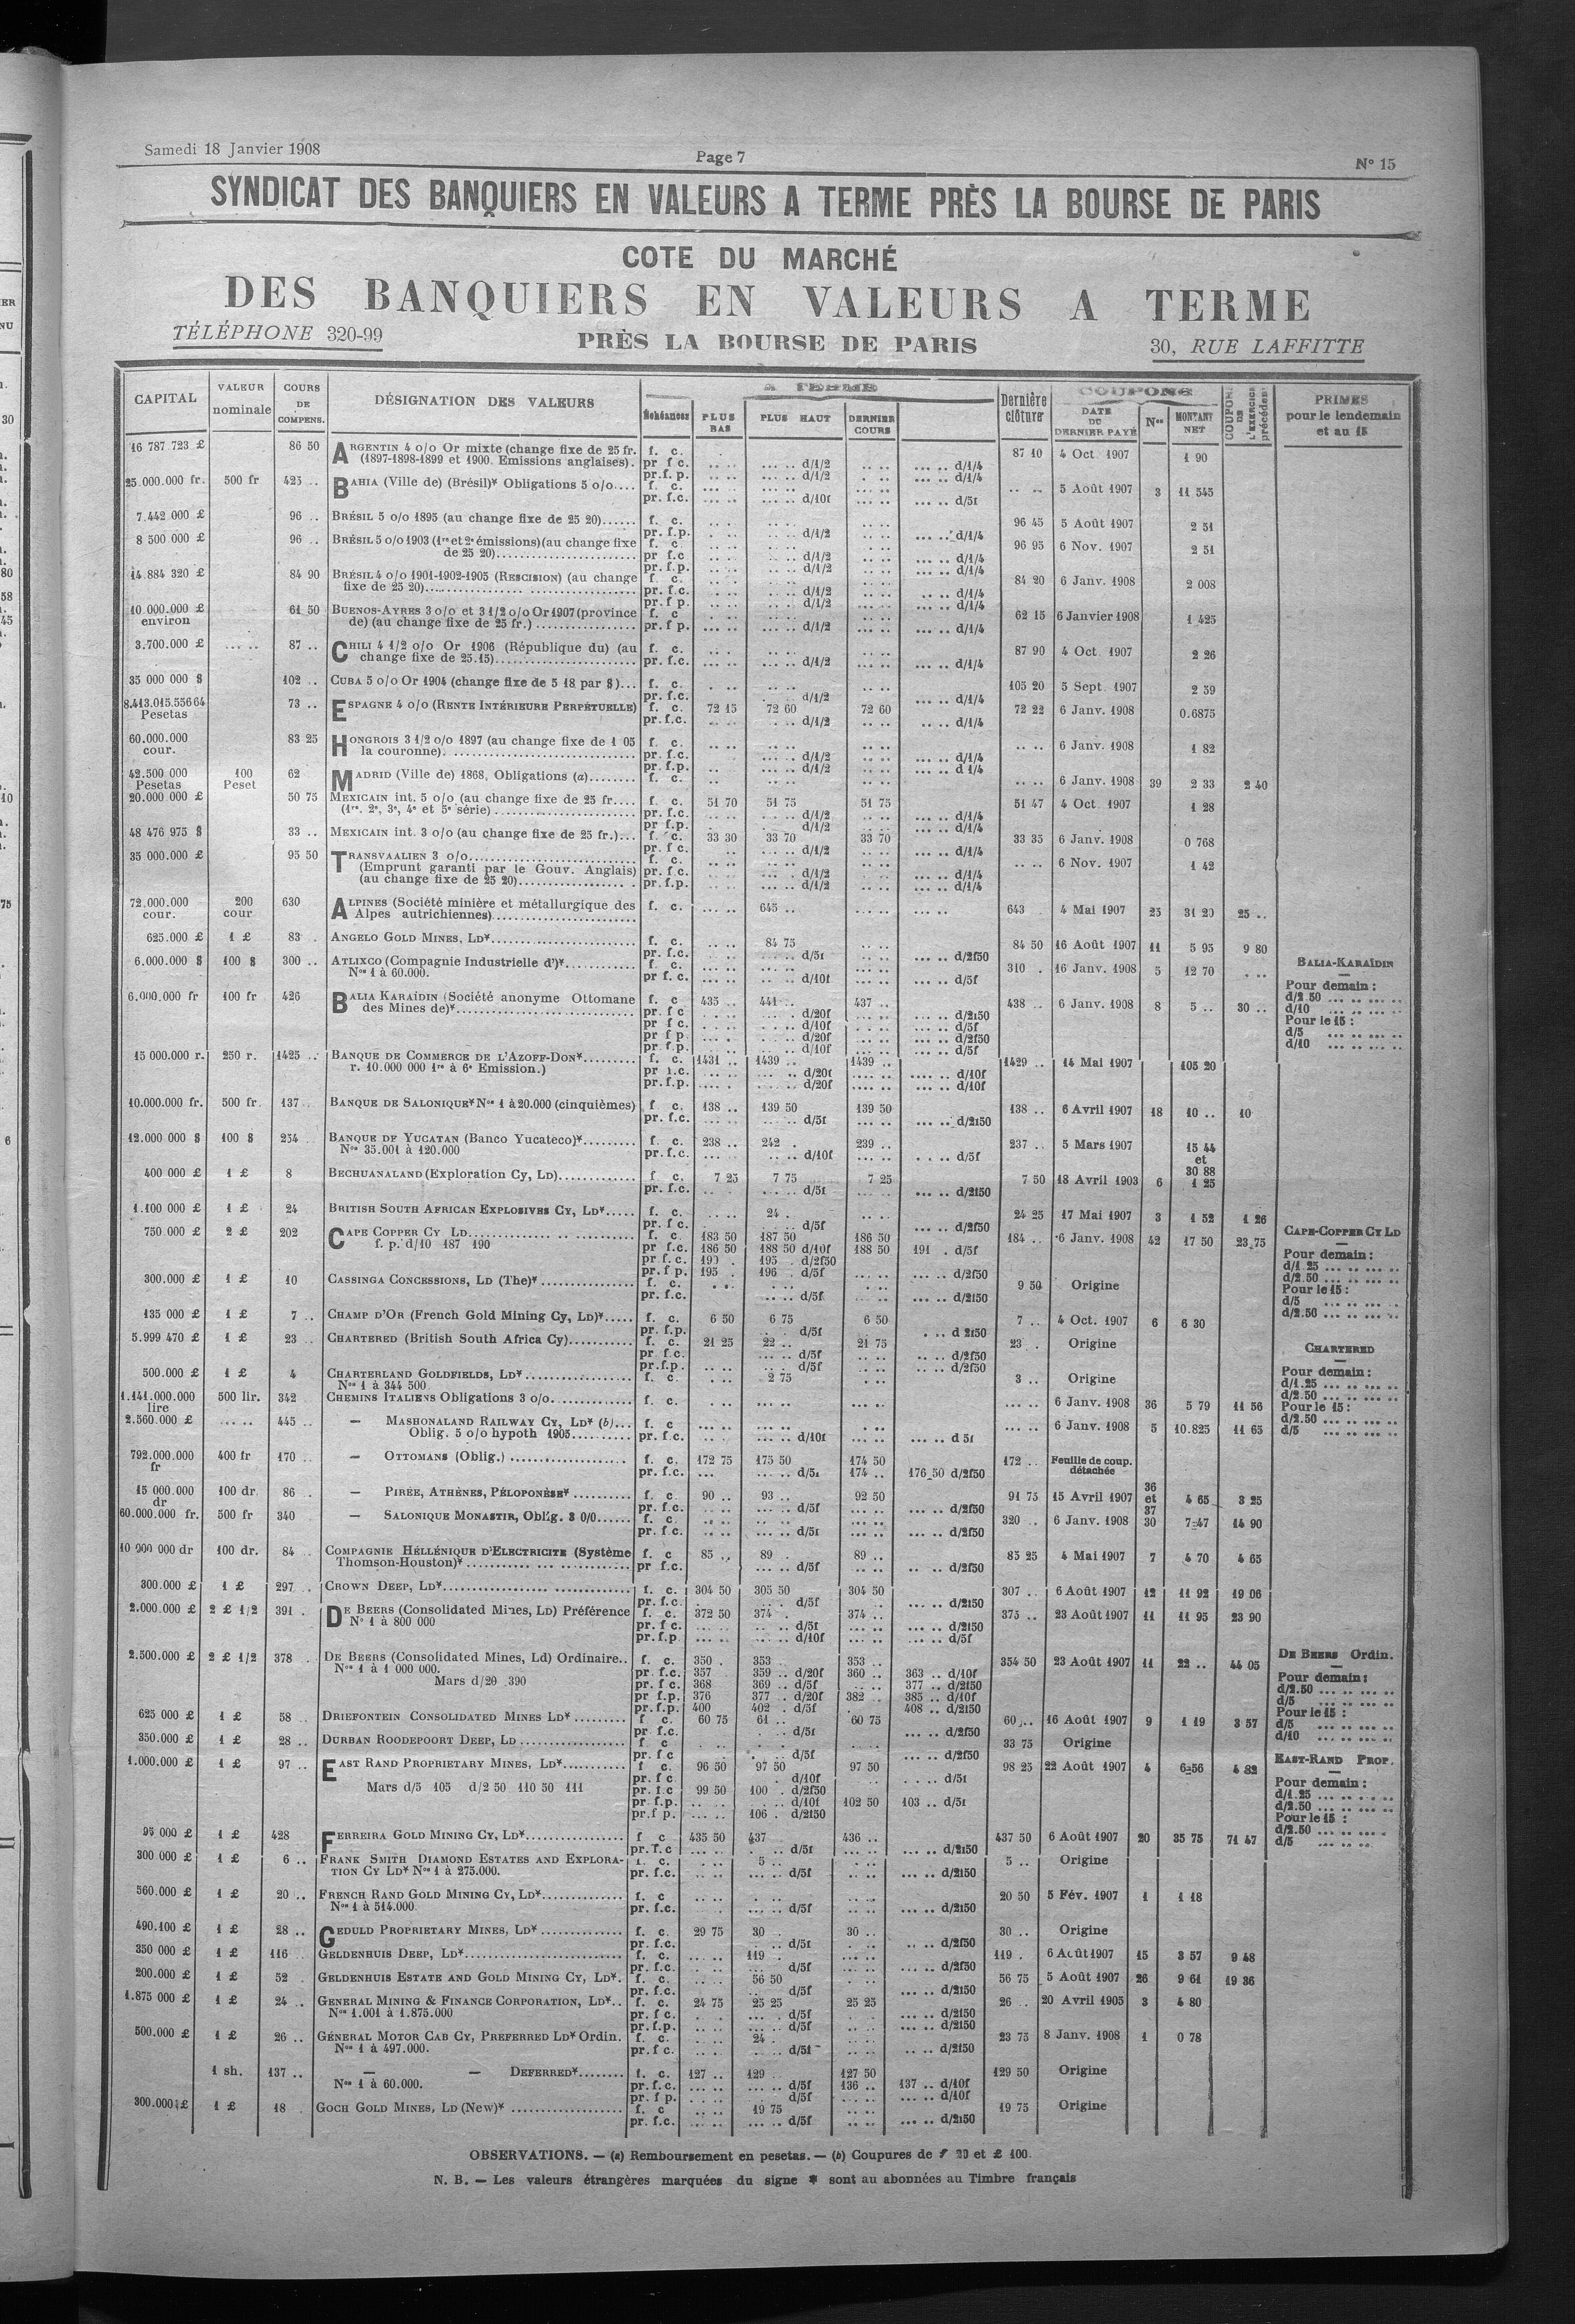 Samedi 18 Janvier 1908
Page 7
N° 15
SYNDICAT DES BANQUIERS EN VALEURS A TERME PRÈS LA BOURSE DE PARIS
COTE DU MARCHÉ
DES BANQUIERS EN VALEURS A TERME
TÉLÉPHONE 320-99 PRÈS LA BOURSE DE PARIS 30, RUE LAFFITTE
CAPITAL VALEUR nominale COURS DE COMPENS. DÉSIGNATION DES VALEURS A TERME Échéances PLUS BAS PLUS HAUT DERNIER COURS Dernière clôture COUPONS DATE DU DERNIER PAYÉ Nos MONTANT NET COUPONS DE L'EXERCICE précédent PRIMES pour le lendemain et au 15
16 787 723 £ 86 50 ARGENTIN 4 o/o Or mixte (change fixe de 25 fr. f. c. 87 10 4 Oct 1907 1 90
(1897-1898-1899 et 1900. Emissions anglaises). pr f c. .. .. ... .. d/1/2 .. .. ... .. d/1/4
pr.f. p. .. .. ... .. d/1/2 ... .. d/1/4
25.000.000 fr. 500 fr 425 .. BAHIA (Ville de) (Brésil)* Obligations 5 o/o.... f. c. .. .. 5 Août 1907 3 11 545
pr. f.c. ... .. d/10f ... .. d/5f
7.442 000 £ 96 .. BRÉSIL 5 o/o 1895 (au change fixe de 25 20)...... f. c. 96 45 5 Août 1907 2 51
pr. f.p. d/1/2 d/1/4
8 500 000 £ 96 .. BRÉSIL 5 o/o 1903 (1re et 2e émissions)(au change fixe f. c. 96 95 6 Nov. 1907 2 51
de 25 20)......... pr f.c d/1/2 d/1/4
pr. f.p. d/1/2 d/1/4
14.884 320 £ 84 90 BRÉSIL 4 o/o 1901-1902-1905 (RESCISION) (au change f. c. 84 20 6 Janv. 1908 2 008
fixe de 25 20)......... pr. f.c. d/1/2 d/1/4
pr. f p. d/1/2 d/1/4
10 000.000 £ environ 61 50 BUENOS-AYRES 3 o/o et 3 1/2 o/o Or 1907 (province f. c 62 15 6 Janvier 1908 1 425
de) (au change fixe de 25 fr.) ......... pr. f p. d/1/2 d/1/4
3.700.000 £ ... .. 87 .. CHILI 4 1/2 o/o Or 1906 (République du) (au f. c. 87 90 4 Oct 1907 2 26
change fixe de 25.15)......... pr. f.c. d/1/2 d/1/4
35 000 000 $ 102 .. CUBA 5 o/o Or 1904 (change fixe de 5 18 par $)... f. c. 105 20 5 Sept 1907 2 59
pr. f.c. d/1/2 d/1/4
8.413.015.556 64 Pesetas 73 .. ESPAGNE 4 o/o (RENTE INTÉRIEURE PERPÉTUELLE) f. c. 72 15 72 60 72 60 72 22 6 Janv. 1908 0.6875
pr. f.c. d/1/2 d/1/4
60.000.000 cour. 83 25 HONGROIS 3 1/2 o/o 1897 (au change fixe de 1 05 f. c. .. .. 6 Janv. 1908 1 82
la couronne). ......... pr. f.c. d/1/2 d/1/4
pr. f.p. d/1/2 d 1/4
42.500 000 Pesetas 100 Peset 62 MADRID (Ville de) 1868, Obligations (a)........ f. c. .. .. 6 Janv. 1908 39 2 33 2 40
20.000 000 £ 50 75 MEXICAIN int. 5 o/o (au change fixe de 25 fr.... f. c. 51 70 51 75 51 75 51 47 4 Oct. 1907 1 28
(1re, 2e, 3e, 4e et 5e série) ......... pr. f.c. d/1/2 d/1/4
pr f.p. d/1/2 d/1/4
48 476 975 $ 33 .. MEXICAIN int. 3 o/o (au change fixe de 25 fr.)... f. c. 33 30 33 70 33 70 33 35 6 Janv. 1908 0 768
pr. f c. d/1/2 d/1/4
35 000.000 £ 95 50 TRANSVAALIEN 3 o/o......... f. c. .. .. 6 Nov. 1907 1 42
(Emprunt garanti par le Gouv. Anglais) pr. f.c. d/1/2 d/1/4
(au change fixe de 25 20)......... pr.f.p. d/1/2 d/1/4
72.000.000 cour. 200 cour 630 ALPINES (Société minière et métallurgique des f. c. 645 .. 643 4 Mai 1907 25 31 20 25 ..
Alpes autrichiennes).........
625.000 £ 1 £ 83 . ANGELO GOLD MINES, LD*......... f. c. 84 75 84 50 16 Août 1907 11 5 95 9 80
pr. f.c. d/5f d/2f50
6.000.000 $ 100 $ 300 .. ATLIXCO (Compagnie Industrielle d')*......... f. c. 310 . 16 Janv. 1908 5 12 70
Nos 1 à 60.000. pr f. c. d/10f d/5f
BALIA-KARAÏDIN
6.000.000 fr 100 fr 426 BALIA KARAÏDIN (Société anonyme Ottomane f. c 435 .. 441 .. 437 .. 438 .. 6 Janv. 1908 8 5 .. 30 ..
des Mines de)*......... pr. f c d/20f d/2f50
pr f c. d/10f d/5f
pr f p. d/20f d/2f50
pr. f.p. d/10f d/5f
Pour demain :
d/2 50 ... .. ... ..
d/10 ... .. ... ..
Pour le 15 :
d/5 ... .. ... ..
d/10 ... .. ... ..
15 000.000 r. 250 r. 1425 .. BANQUE DE COMMERCE DE L'AZOFF-DON*......... f. c. 1431 .. 1439 .. 1439 .. 1429 .. 14 Mai 1907 105 20
r. 10.000 000 1re à 6e Emission.) d/20f d/10f
pr. f.p. d/20f d/10f
10.000.000 fr. 500 fr. 137 BANQUE DE SALONIQUE* Nos 1 à 20.000 (cinquièmes) f c. 138 .. 139 50 139 50 138 .. 6 Avril 1907 18 10 .. 10
pr. f.c. d/5f d/2f50
12.000 000 $ 100 $ 234 BANQUE DE YUCATAN (Banco Yucateco)*......... f. c. 238 .. 242 . 239 .. 237 .. 5 Mars 1907 15 44 et 30 88
Nos 35.001 à 120.000 pr. f.c. d/10f d/5f
400 000 £ 1 £ 8 BECHUANALAND (Exploration Cy, LD)......... f c. 7 25 7 75 7 25 7 50 18 Avril 1903 6 1 25
pr. f.c. d/5f d/2f50
1.100 000 £ 1 £ 24 BRITISH SOUTH AFRICAN EXPLOSIVES CY, LD*..... f. c. 24 . 24 25 17 Mai 1907 3 1 52 1 26
pr. f c. d/5f d/2f50
750.000 £ 2 £ 202 CAPE COPPER CY LD......... f. c. 183 50 187 50 186 50 184 .. 6 Janv. 1908 42 17 50 23.75
f. p. d/10 187 190 pr f.c. 186 50 188 50 d/10f 188 50 191 . d/5f
pr f. c. 190 . 195 . d/2f50
pr. f p. 195 . 196 . d/5f d/2f50
CAPE-COPPER CY LD
Pour demain :
d/1 25 ... .. ... ..
d/2.50 ... .. ... ..
Pour le 15 :
d/5 ... .. ... ..
d/2.50 ... .. ... ..
300.000 £ 1 £ 10 CASSINGA CONCESSIONS, LD (The)* ......... f. c. 9 50 Origine
pr. f.c. d/5f d/2f50
135 000 £ 1 £ 7 .. CHAMP D'OR (French Gold Mining Cy, LD)*..... f. c. 6 50 6 75 6 50 7 .. 4 Oct. 1907 6 6 30
pr. f.p. d/5f d 2f50
5.999 470 £ 1 £ 23 .. CHARTERED (British South Africa Cy)......... f. c. 21 25 22 .. 21 75 23 . Origine
pr f.c. d/5f d/2f50
pr.f.p. d/5f d/2f50
500.000 £ 1 £ 4 CHARTERLAND GOLDFIELDS, LD*......... f. c. 2 75 3 .. Origine
Nos 1 à 344 500
CHARTERED
Pour demain :
d/1.25 ... .. ... ..
d/2.50 ... .. ... ..
Pour le 15 :
d/2.50 ... .. ... ..
d/5 ... .. ... ..
1.141.000.000 lire 500 lir. 342 CHEMINS ITALIENS Obligations 3 o/o......... f. c. 6 Janv. 1908 36 5 79 11 56
2.560.000 £ ... .. 445 .. — MASHONALAND RAILWAY CY, LD* (b)... f. c 6 Janv. 1908 5 10.825 11 65
Oblig. 5 o/o hypoth 1905......... pr. f.c. d/10f d 5f
792.000.000 fr 400 fr 170 .. — OTTOMANS (Oblig.) ......... f. c. 172 75 175 50 174 50 172 .. Feuille de coup. détachée
pr. f.c. d/5f 174 .. 176 50 d/2f50
15 000.000 dr 100 dr 86 .. — PIRÉE, ATHÈNES, PÉLOPONÈSE* ......... f. c 90 .. 93 .. 92 50 91 75 15 Avril 1907 36 et 37 4 65 3 25
pr. f.c. d/5f d/2f50
60.000.000 fr. 500 fr 340 — SALONIQUE MONASTIR, Oblig. 3 0/0...... f. c 320 .. 6 Janv. 1908 30 7-47 14 90
pr. f.c. d/5f d/2f50
10 000 000 dr 100 dr. 84 .. COMPAGNIE HÉLLÉNIQUE D'ELECTRICITÉ (Système f. c 85 .. 89 . 89 .. 85 25 4 Mai 1907 7 4 70 4 65
Thomson-Houston)* ......... pr f.c. d/5f d/2f50
300.000 £ 1 £ 297 .. CROWN DEEP, LD*......... f. c. 304 50 305 50 304 50 307 .. 6 Août 1907 12 11 92 19 06
pr. f.c. d/5f d/2f50
2.000.000 £ 2 £ 1/2 391 . DE BEERS (Consolidated Mines, LD) Préférence f. c. 372 50 374 . 374 .. 375 .. 23 Août 1907 11 11 95 23 90
N° 1 à 800 000 pr. f c. d/5f d/2f50
pr. f.p d/10f d/5f
2.500.000 £ 2 £ 1/2 378 . DE BEERS (Consolidated Mines, Ld) Ordinaire.. f. c. 350 . 353 .. 353 .. 354 50 23 Août 1907 11 22 .. 44 05
Nos 1 à 1 000 000. pr. f.c. 357 359 .. d/20f 360 .. 363 .. d/10f
Mars d/20 390 pr. f c. 368 369 .. d/5f 377 .. d/2f50
pr f.p. 376 377 .. d/20f 382 .. 385 .. d/10f
pr. f.p. 400 402 . d/5f 408 .. d/2f50
DE BEERS Ordin.
Pour demain :
d/2.50 ... .. ... ..
d/5 ... .. ... ..
Pour le 15 :
d/5 ... .. ... ..
d/10 ... .. ... ..
625 000 £ 1 £ 58 .. DRIEFONTEIN CONSOLIDATED MINES LD*......... f c. 60 75 61 .. 60 75 60 .. 16 Août 1907 9 1 19 3 57
pr. f.c. d/5f d/2f50
350.000 £ 1 £ 28 .. DURBAN ROODEPOORT DEEP, LD ......... f c 33 75 Origine
pr. f c d/5f d/2f50
1.000.000 £ 1 £ 97 .. EAST RAND PROPRIETARY MINES, LD*......... f c. 96 50 97 50 97 50 98 25 22 Août 1907 4 6-56 4 82
pr. f c d/10f d/5f
Mars d/5 105 d/2 50 110 50 111 pr. f c 99 50 100 . d/2f50
pr. f.p. d/10f 102 50 103 .. d/5f
pr.f p. 106 . d/2f50
EAST-RAND PROP.
Pour demain :
d/1.25 ... .. ... ..
d/2.50 ... .. ... ..
Pour le 15 :
d/2.50 ... .. ... ..
d/5 ... .. ... ..
95 000 £ 1 £ 428 FERREIRA GOLD MINING CY, LD*......... f c 435 50 437 436 .. 437 50 6 Août 1907 20 35 75 71 47
pr. f.c d/5f d/2f50
300 000 £ 1 £ 6 .. FRANK SMITH DIAMOND ESTATES AND EXPLORA- f. c. 5 .. 5 .. Origine
TION CY LD* Nos 1 à 275.000. pr. f.c. d/5f d/2f50
560.000 £ 1 £ 20 .. FRENCH RAND GOLD MINING CY, LD*......... f. c 20 50 5 Fév. 1907 1 1 18
Nos 1 à 514.000 pr. f.c. d/5f d/2f50
490.100 £ 1 £ 28 .. GEDULD PROPRIETARY MINES, LD* ......... f. c. 29 75 30 . 30 .. 30 .. Origine
pr. f.c. d/5f d/2f50
350 000 £ 1 £ 116 GELDENHUIS DEEP, LD*......... f. c. 119 . 119 . 6 Août 1907 15 3 57 9 48
pr. f.c. d/5f d/2f50
200.000 £ 1 £ 52 . GELDENHUIS ESTATE AND GOLD MINING CY, LD*. f. c. 56 50 56 75 5 Août 1907 26 9 61 19 36
pr. f.c. d/5f d/2f50
1.875 000 £ 1 £ 24 .. GENERAL MINING & FINANCE CORPORATION, LD*.. f. c. 24 75 25 25 25 25 26 .. 20 Avril 1905 3 4 80
Nos 1.001 à 1.875.000 pr. f c. d/5f d/2f50
pr. f.p. d/5f d/2f50
500.000 £ 1 £ 26 .. GÉNERAL MOTOR CAB CY, PREFERRED LD* Ordin. f. c. 24 . 23 75 8 Janv. 1908 1 0 78
Nos 1 à 497.000. pr. f c. d/5f d/2f50
1 sh. 137 .. — — DEFERRED*........ f. c. 127 .. 129 . 127 50 129 50 Origine
Nos 1 à 60.000. pr. f.c. d/5f 136 .. 137 .. d/10f
pr. f p. d/5f d/10f
300.000 £ 1 £ 18 . GOCH GOLD MINES, LD (New)* ......... f. c 19 75 19 75 Origine
pr. f.c. d/5f d/2f50
OBSERVATIONS. — (a) Remboursement en pesetas. — (b) Coupures de £ 20 et £ 100.
N. B. — Les valeurs étrangères marquées du signe * sont au abonnées au Timbre français